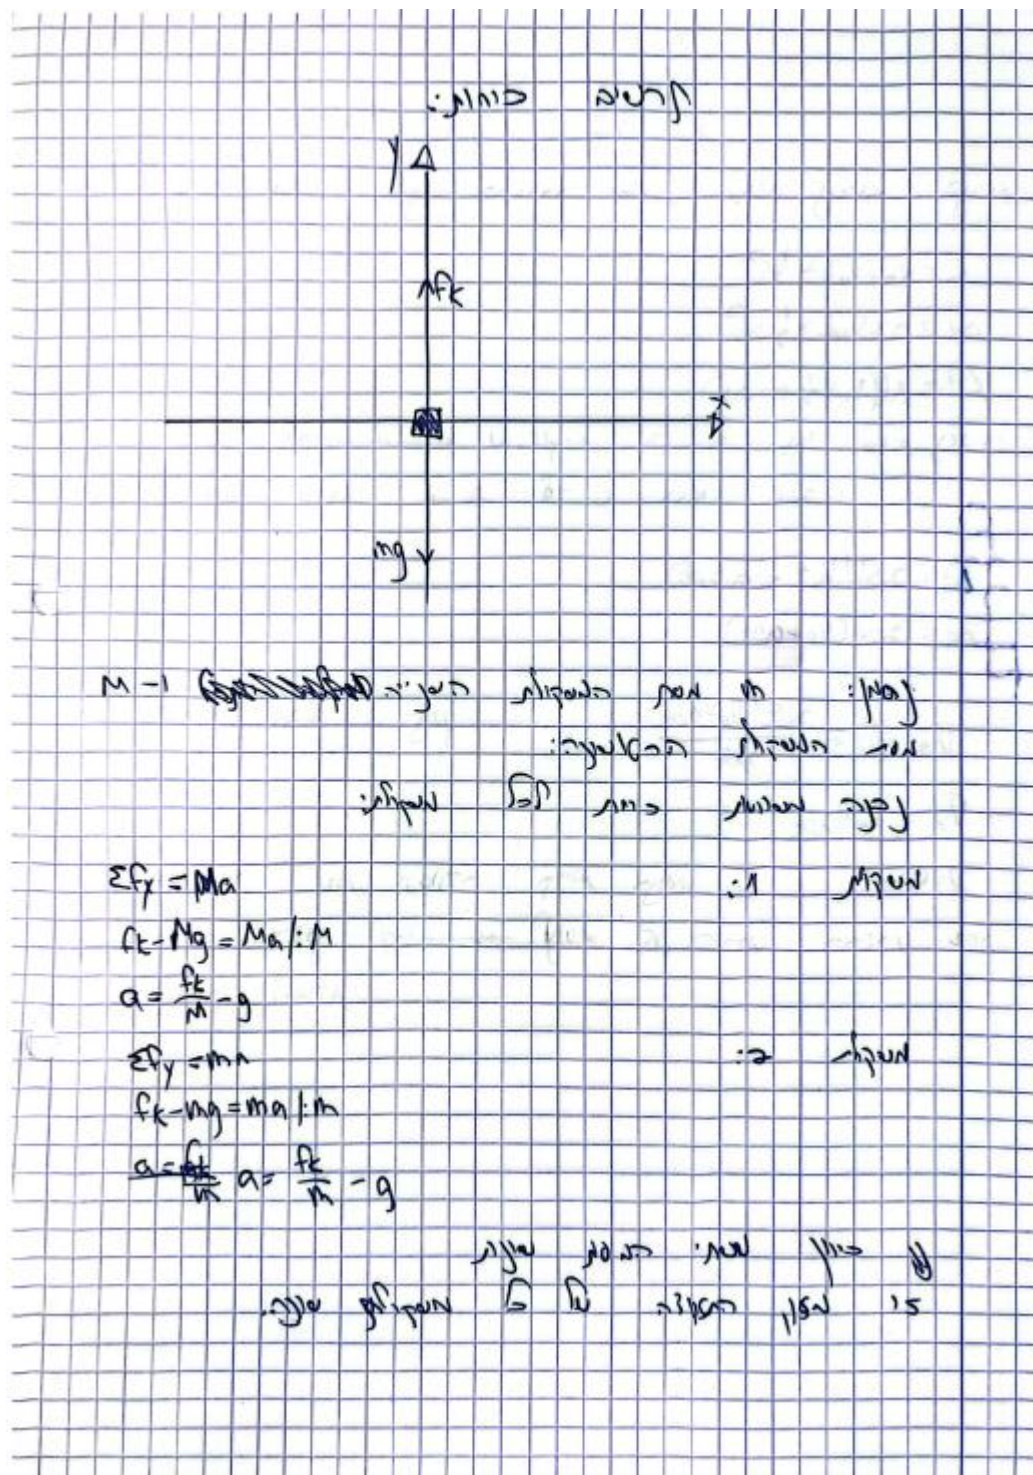 תרשים כוחות:
y
fk
x
mg
נסמן: m מסת המשקולת השנייה ו- M
מסת המשקולת הראשונה:
נבנה משוואת כוחות לכל משקולת:
משקולת 1:
Σfy = Ma
fk-Mg = Ma /:M
a = fk/M - g
משקולת 2:
Σfy = ma
fk-mg = ma /:m
a = fk/m - g
כיוון שמסת המסות שונות
אז תאוצה של כל משקולת שונה.